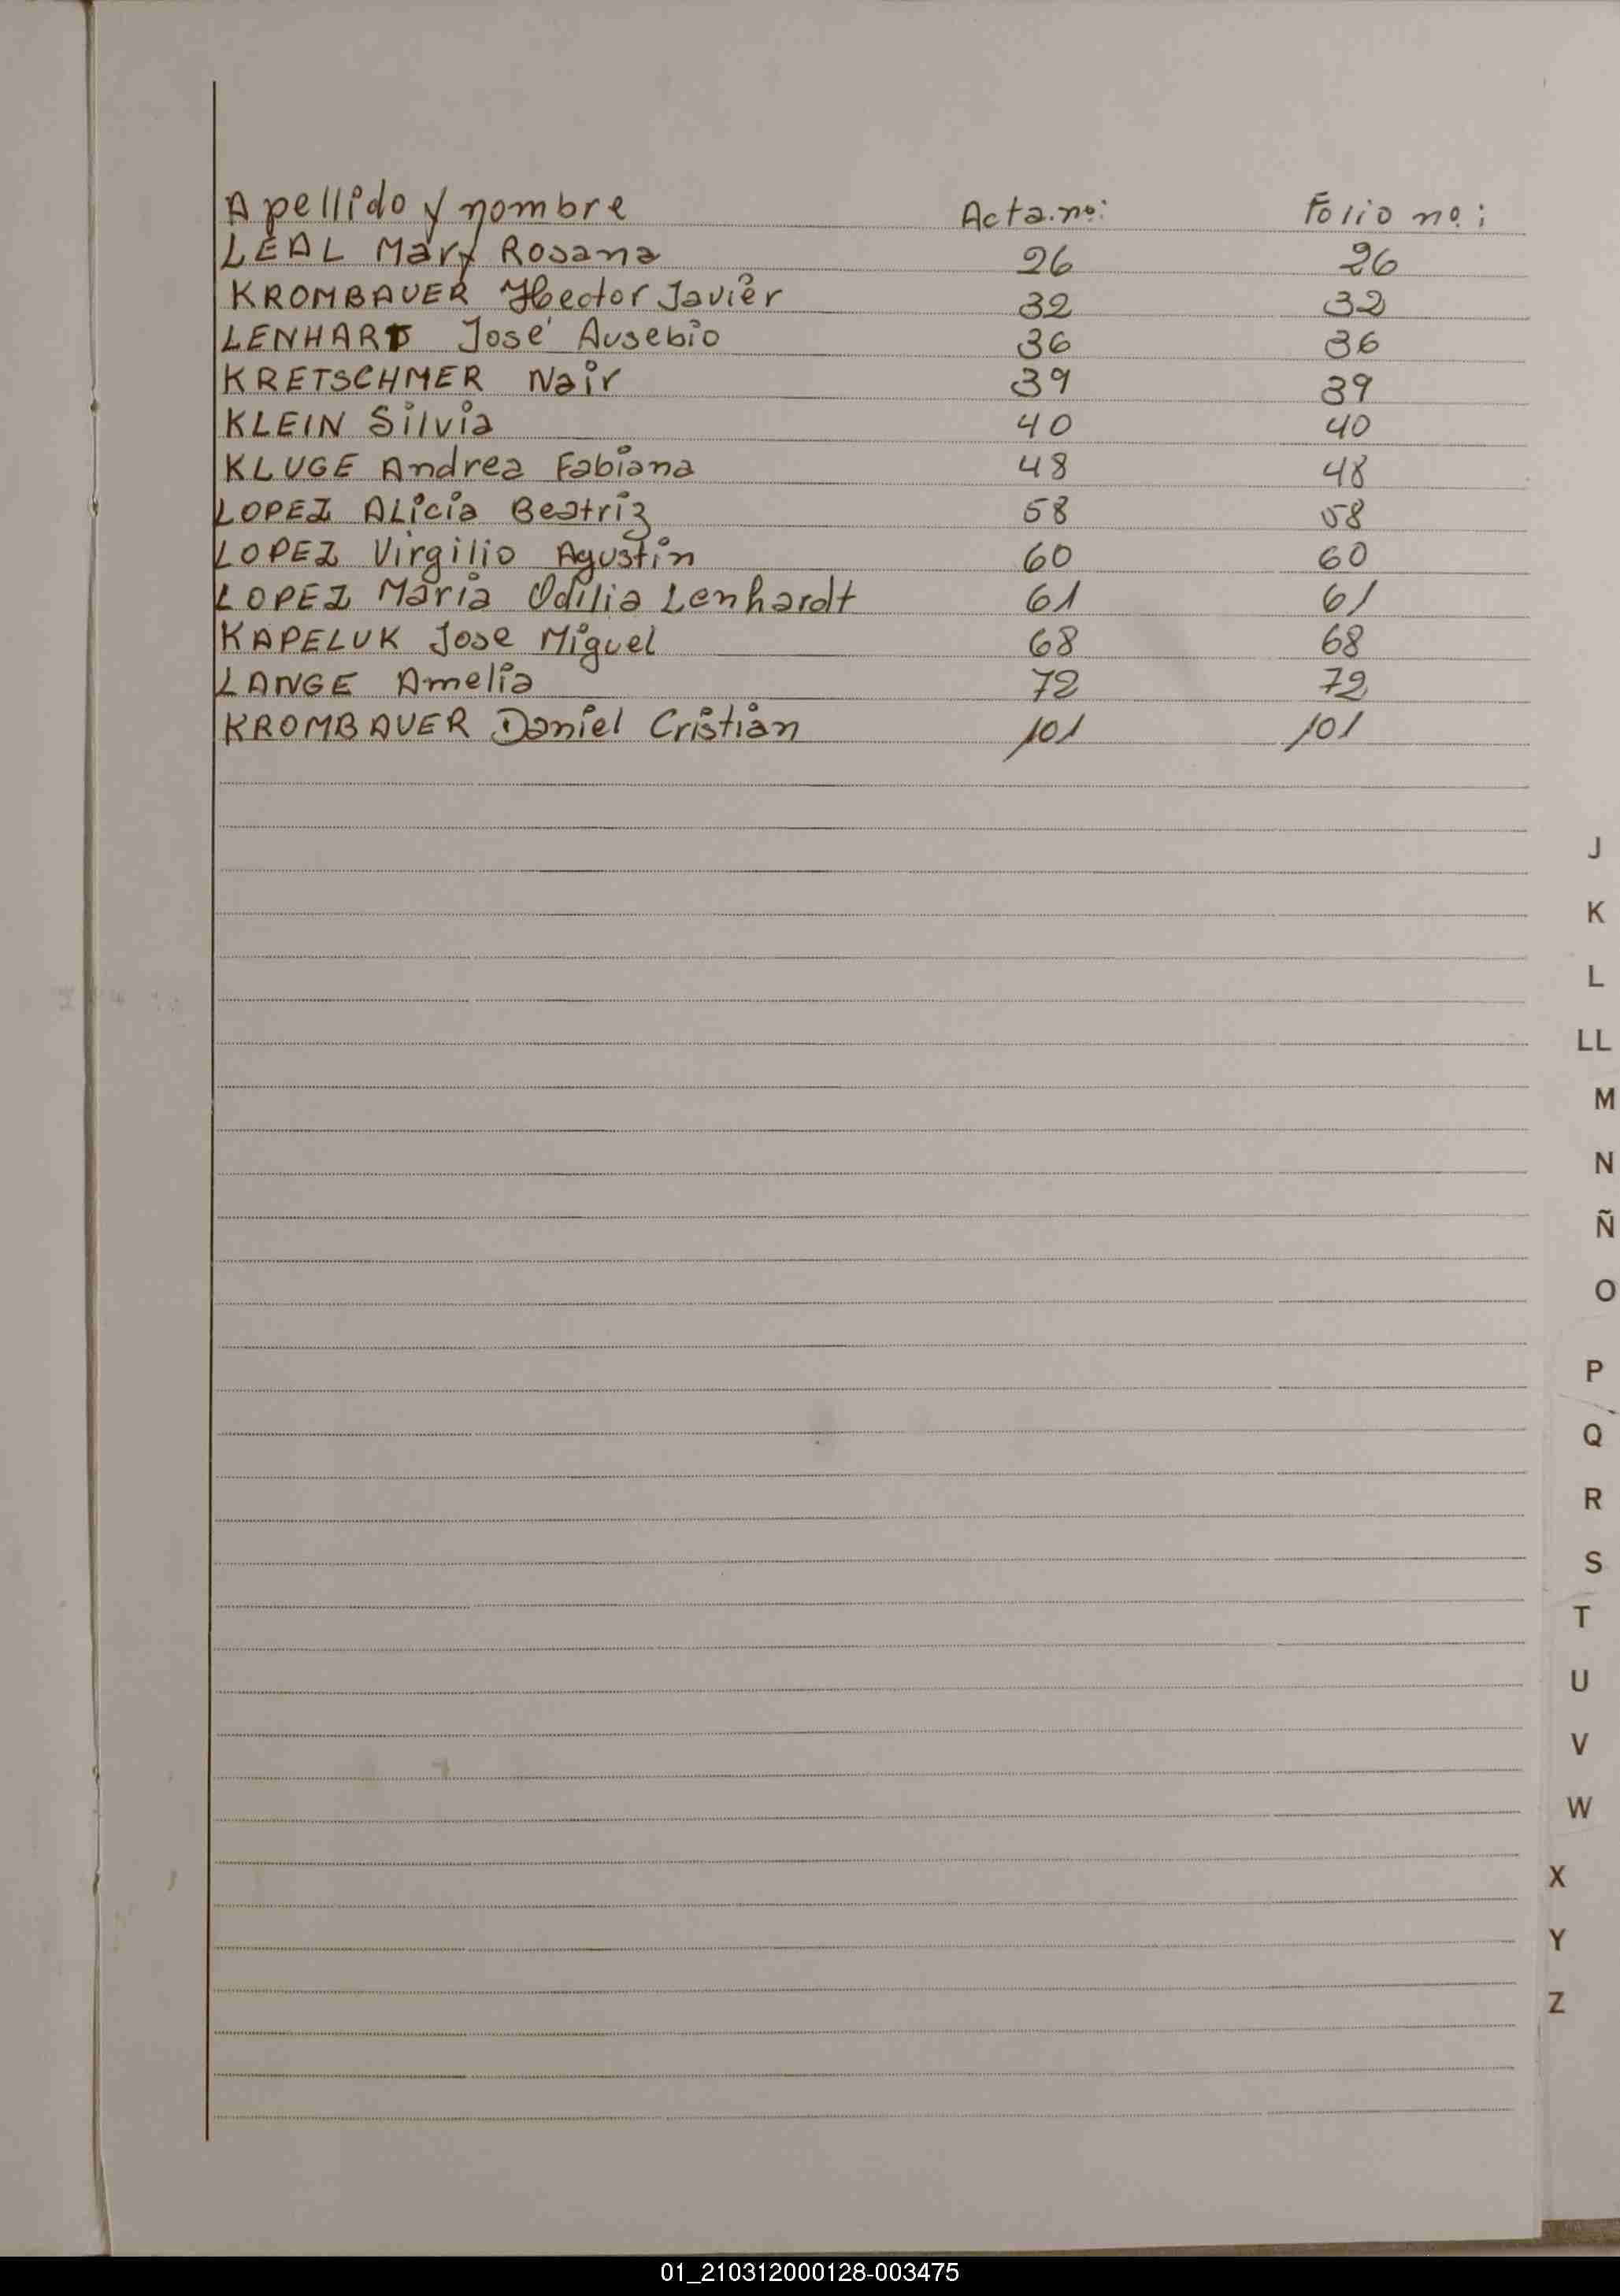 Apellido y nombre Acta.nº: Folio nº:
LEAL Mary Rosana 26 26
KROMBAUER Hector Javier 32 32
LENHART José Ausebio 36 36
KRETSCHMER Nair 39 39
KLEIN Silvia 40 40
KLUGE Andrea Fabiana 48 48
LOPEZ Alicia Beatriz 58 58
LOPEZ Virgilio Agustin 60 60
LOPEZ Maria Odilia Lenhardt 61 61
KAPELUK Jose Miguel 68 68
LANGE Amelia 72 72
KROMBAUER Daniel Cristian 101 101
J
K
L
LL
M
N
Ñ
O
P
Q
R
S
T
U
V
W
X
Y
Z
01_210312000128-003475